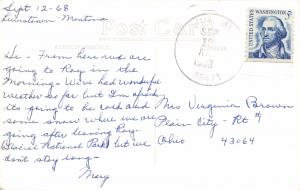 Sept 12-68
Lewistown - Montana
Post Card
Hi - From here we are
going to Roy in the
Morning - We've had wonderful
weather so far but I'm afraid
its going to be cold and
some snow where we are
going after leaving Roy -
Glacier National Park but we
don't stay long -
Mary
SEP
1968
UNITED STATES
WASHINGTON 5¢
Mrs Virginia Brown
Plain City - Rt #1
Ohio 43064